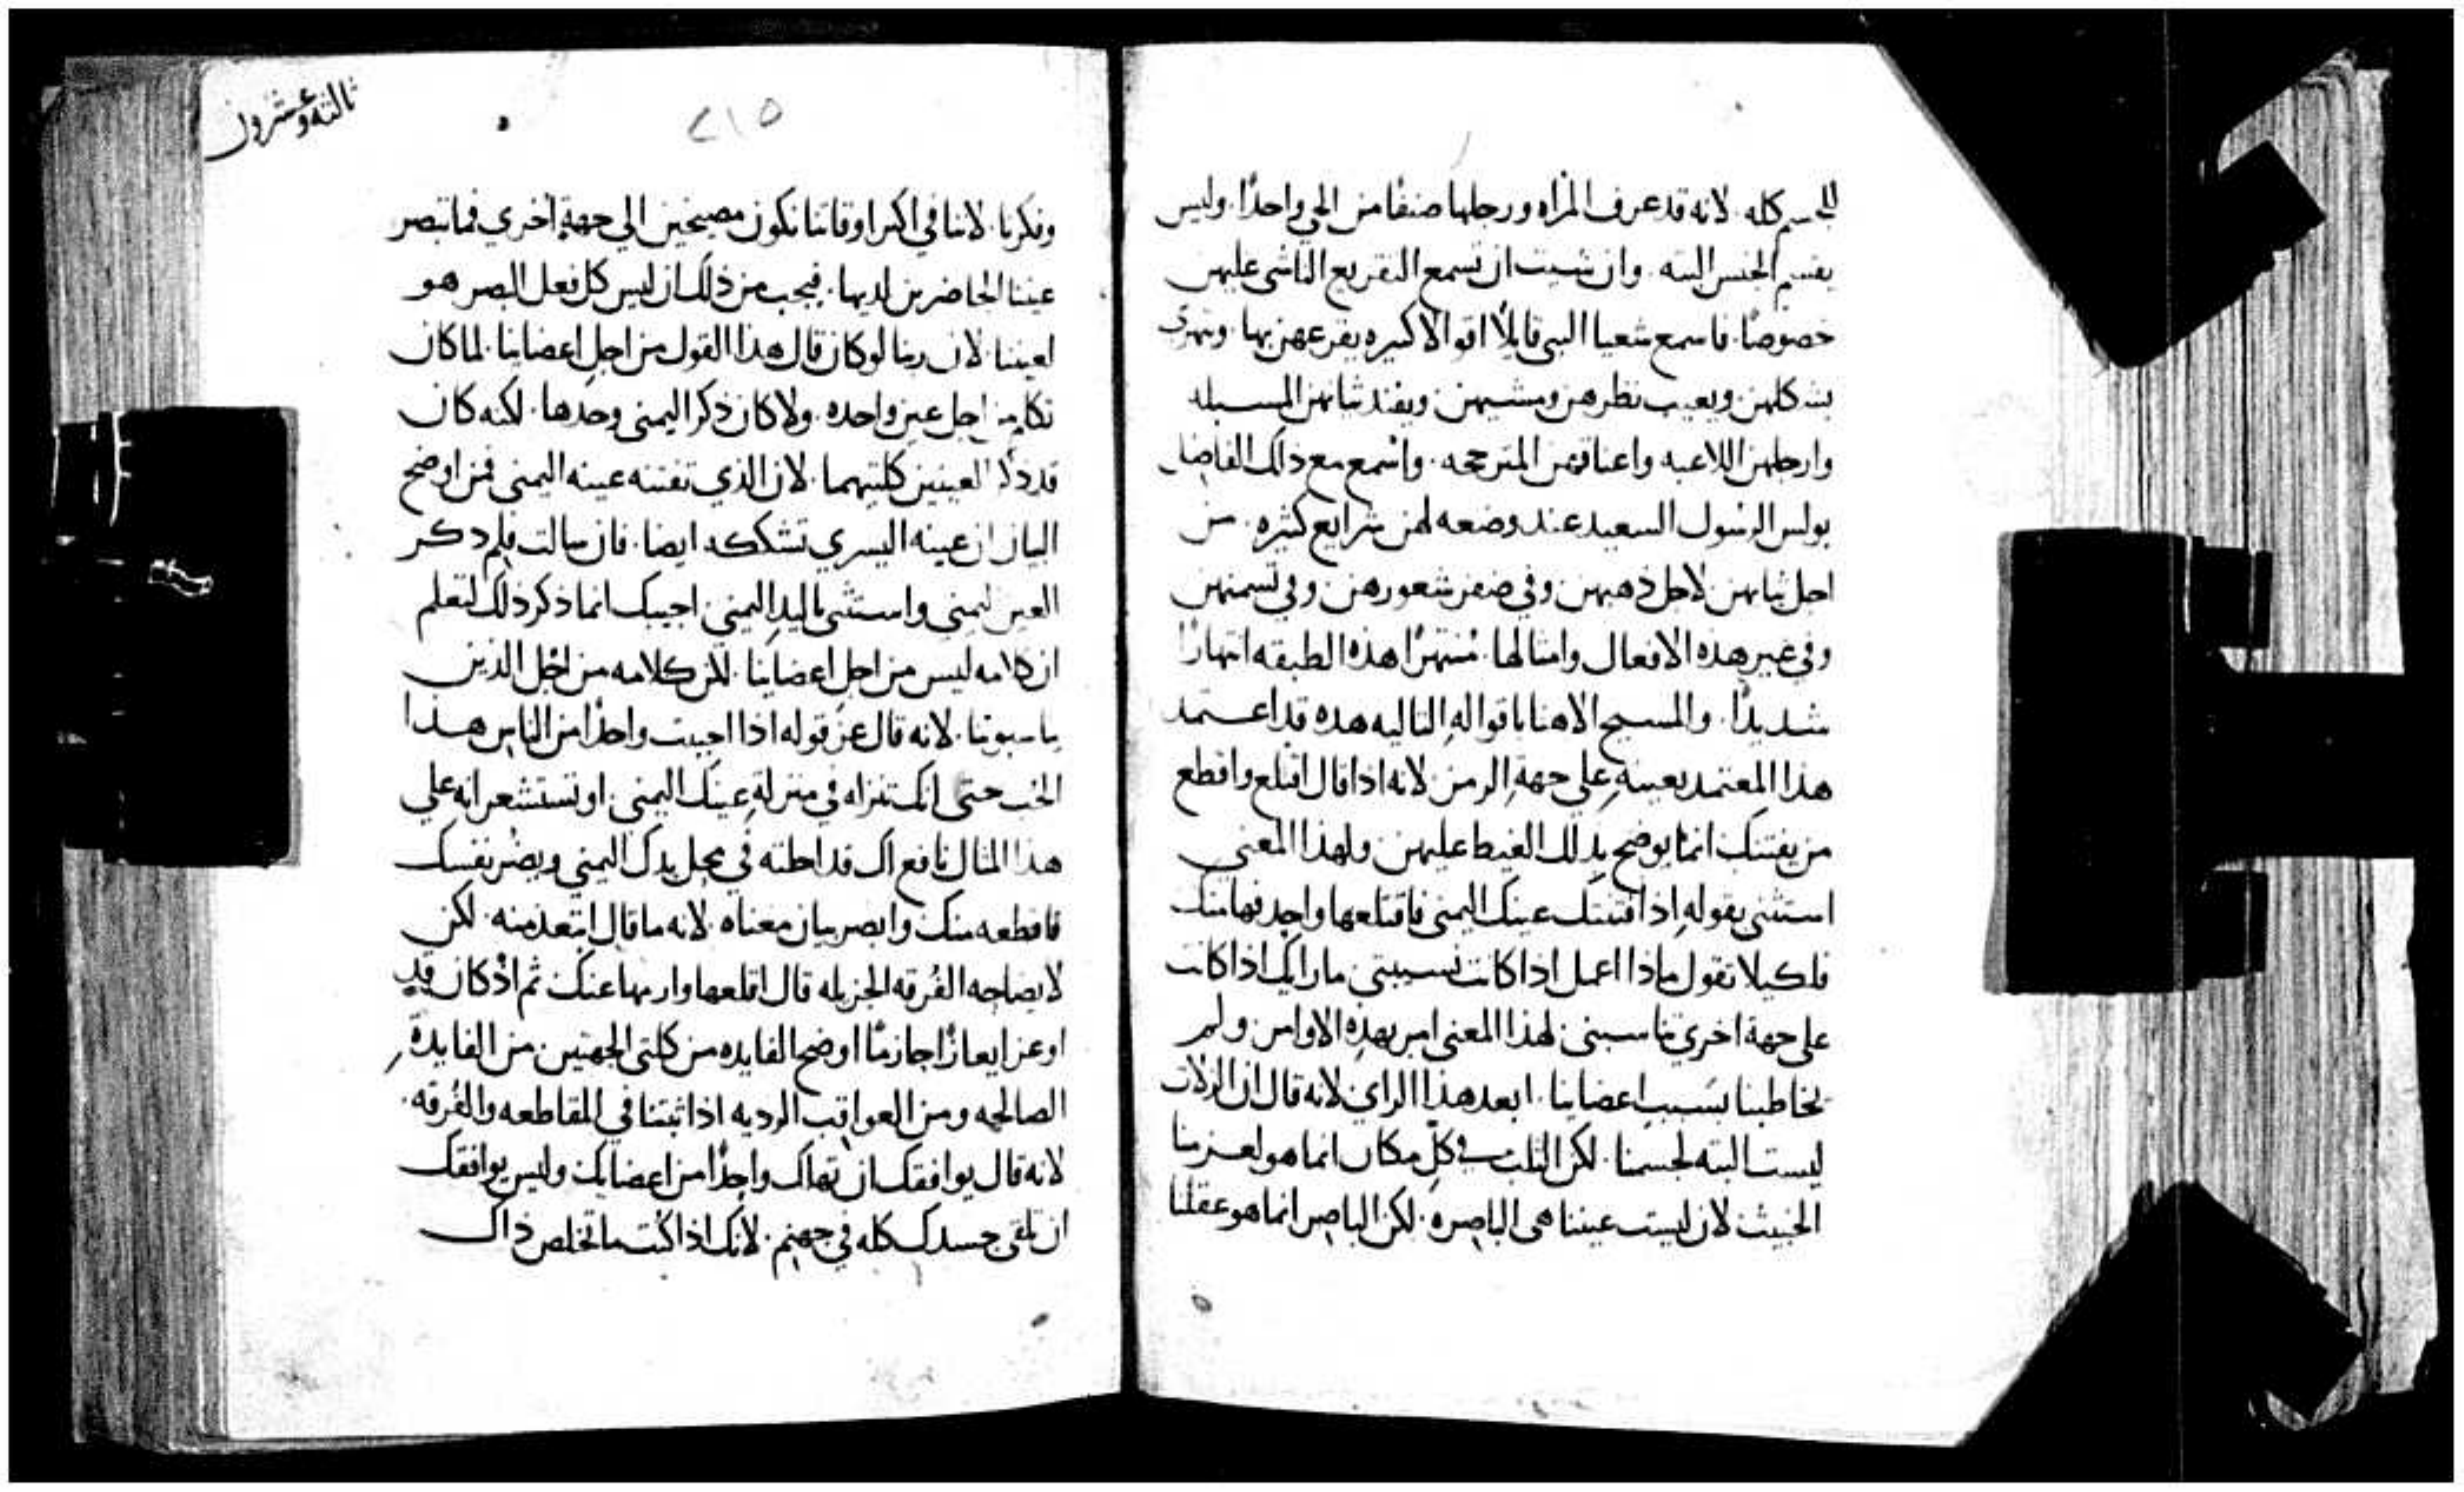 للجسم كله. لانه قد عرف المراه ورجلها صنفًا من الحي واحدًا. وليس
يقسم الجنس البته. وان شيت ان تسمع التقريع الناشي عليهن
خصوصًا. فاسمع شعيا النبي قايلًا اقوالًا كثيره يقرعهن بها. ويهزئ
بشكلهن ويعيب نظرهن ومشيهن ويفند ثيابهن المسبله
وارجلهن اللاعبه واعناقهن المترجحه. واسمع مع ذلك الفاضل
بولس الرسول السعيد عند وضعه لهن شرايع كثيره. من
اجل ثيابهن لاجل ذهبهن وفي ضفر شعورهن وفي تسمنهن
وفي غير هذه الافعال وامثالها. منتهرًا هذه الطبقه انتهارًا
شديدًا. والمسيح الاهنا باقواله التاليه هذه قد اعتمد
هذا المعتمد بعينه على جهة الرمز لانه اذا قال اقلع واقطع
من يفتنك انما يوضح بذلك الغيظ عليهن ولهذا المعنى
استثنى بقوله اذا فتنتك عينك اليمنى فاقتلعها واحذفها منك
فلكيلا تقول ماذا اعمل اذا كانت نسيبتي ما رايك اذا كانت
على جهة اخري تناسبني لهذا المعنى امر بهذه الاوامر ولم
يخاطبنا بسبب اعضاينا. ابعد هذا الراي لانه قال ان الزلات
ليست البته لجسمنا. لكن الثلب في كل مكان انما هو لعزمنا
الخبيث لان ليست عيننا هي الباصره. لكن الباصر انما هو عقلنا
٢١٥
ثالثه وعشرون
وفكرنا. لاننا في اكثر اوقاتنا نكون مصيخين الي جهة اخري فما تبصر
عيننا الحاضرين لديها. فيجب من ذلك ان ليس كل فعل البصر هو
لعيننا. لان ربنا لو كان قال هذا القول من اجل اعضاينا. لما كان
تكلم من اجل عين واحده. ولا كان ذكر اليمني وحدها. لكنه كان
قد ذكر العينين كلتيهما. لان الذي تفتنه عينه اليمني فمن اوضح
البيان ان عينه اليسري تشككه ايضا. فان سالت فلم ذكر
العين اليمني واستثنى باليد اليمني. اجيبك انما ذكر ذلك لتعلم
ان كلامه ليس من اجل اعضاينا. لكن كلامه من اجل الذين
يناسبوننا. لانه قال عن قوله اذا احببت واحدًا من الناس هذا
الحب حتى انك تنزله في منزلة عينك اليمني. او تستشعر انه علي
هذا المثال نافع لك قد احللته في محل يدك اليمني ويضر نفسك
فاقطعه منك وابصر بيان معناه. لانه ما قال ابتعد منه. لكن
لايضاحه الفرقه الجزيله قال اقلعها وارمها عنك ثم اذ كان قد
اوعز ايعازًا جازمًا اوضح الفايده من كلتي الجهتين من الفايدة
الصالحه ومن العواقب الرديه اذا ثبتنا في المقاطعه والفرقه.
لانه قال يوافقك ان تهلك واحدًا من اعضايك وليس يوافقك
ان تلقى جسدك كله في جهنم. لانك اذا كنت ما تخلص ذاك